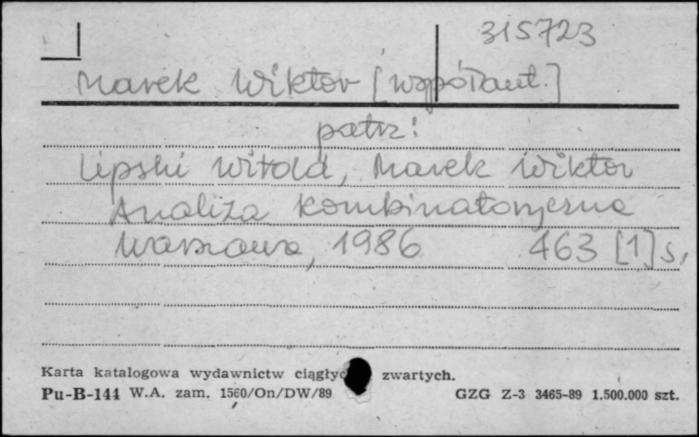 315723
Marek Wiktor [współaut.]
patrz:
Lipski Witold, Marek Wiktor
Analiza kombinatoryczna
Warszawa, 1986 463 [1] s.
Karta katalogowa wydawnictw ciągłyc zwartych.
Pu-B-144 W.A. zam. 1560/On/DW/89 GZG Z-3 3465-89 1.500.000 szt.